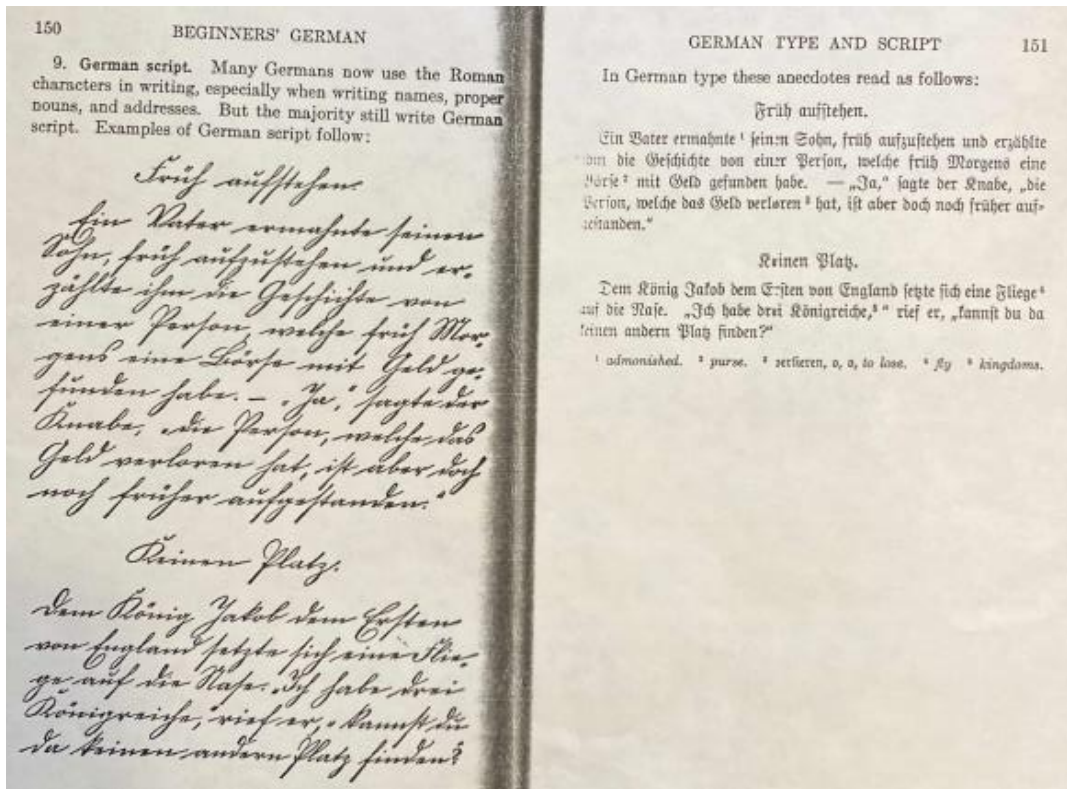 150
BEGINNERS' GERMAN
9. German script. Many Germans now use the Roman
characters in writing, especially when writing names, proper
nouns, and addresses. But the majority still write German
script. Examples of German script follow:
Früh aufstehen.
Ein Vater ermahnte seinen
Sohn, früh aufzustehen und er-
zählte ihm die Geschichte von
einer Person, welche früh Mor-
gens eine Börse mit Geld ge-
funden habe. — „Ja," sagte der
Knabe, „die Person, welche das
Geld verloren hat, ist aber doch
noch früher aufgestanden."
Keinen Platz.
Dem König Jakob dem Ersten
von England setzte sich eine Flie-
ge auf die Nase. „Ich habe drei
Königreiche," rief er, „kannst du
da keinen andern Platz finden?
GERMAN TYPE AND SCRIPT
151
In German type these anecdotes read as follows:
Früh aufstehen.
Ein Vater ermahnte ¹ seinen Sohn, früh aufzustehen und erzählte
ihm die Geschichte von einer Person, welche früh Morgens eine
Börse ² mit Geld gefunden habe. — „Ja," sagte der Knabe, „die
Person, welche das Geld verloren ³ hat, ist aber doch noch früher auf-
gestanden."
Keinen Platz.
Dem König Jakob dem Ersten von England setzte sich eine Fliege ⁴
auf die Nase. „Ich habe drei Königreiche,⁵ " rief er, „kannst du da
keinen andern Platz finden?"
¹ admonished. ² purse. ³ verlieren, o, o, to lose. ⁴ fly ⁵ kingdoms.